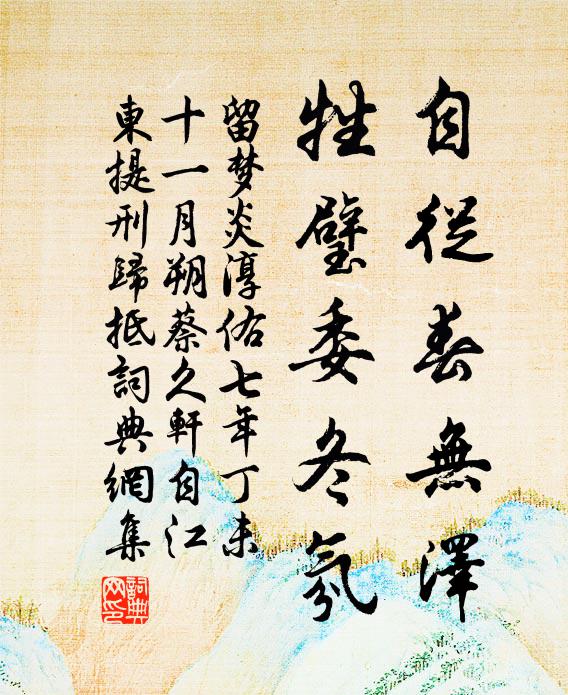 自從春無澤
牲璧委冬氛
留梦炎淳佑七年丁未
十一月朔蔡久軒自江
東提刑歸抵詞典網集
詞典网印